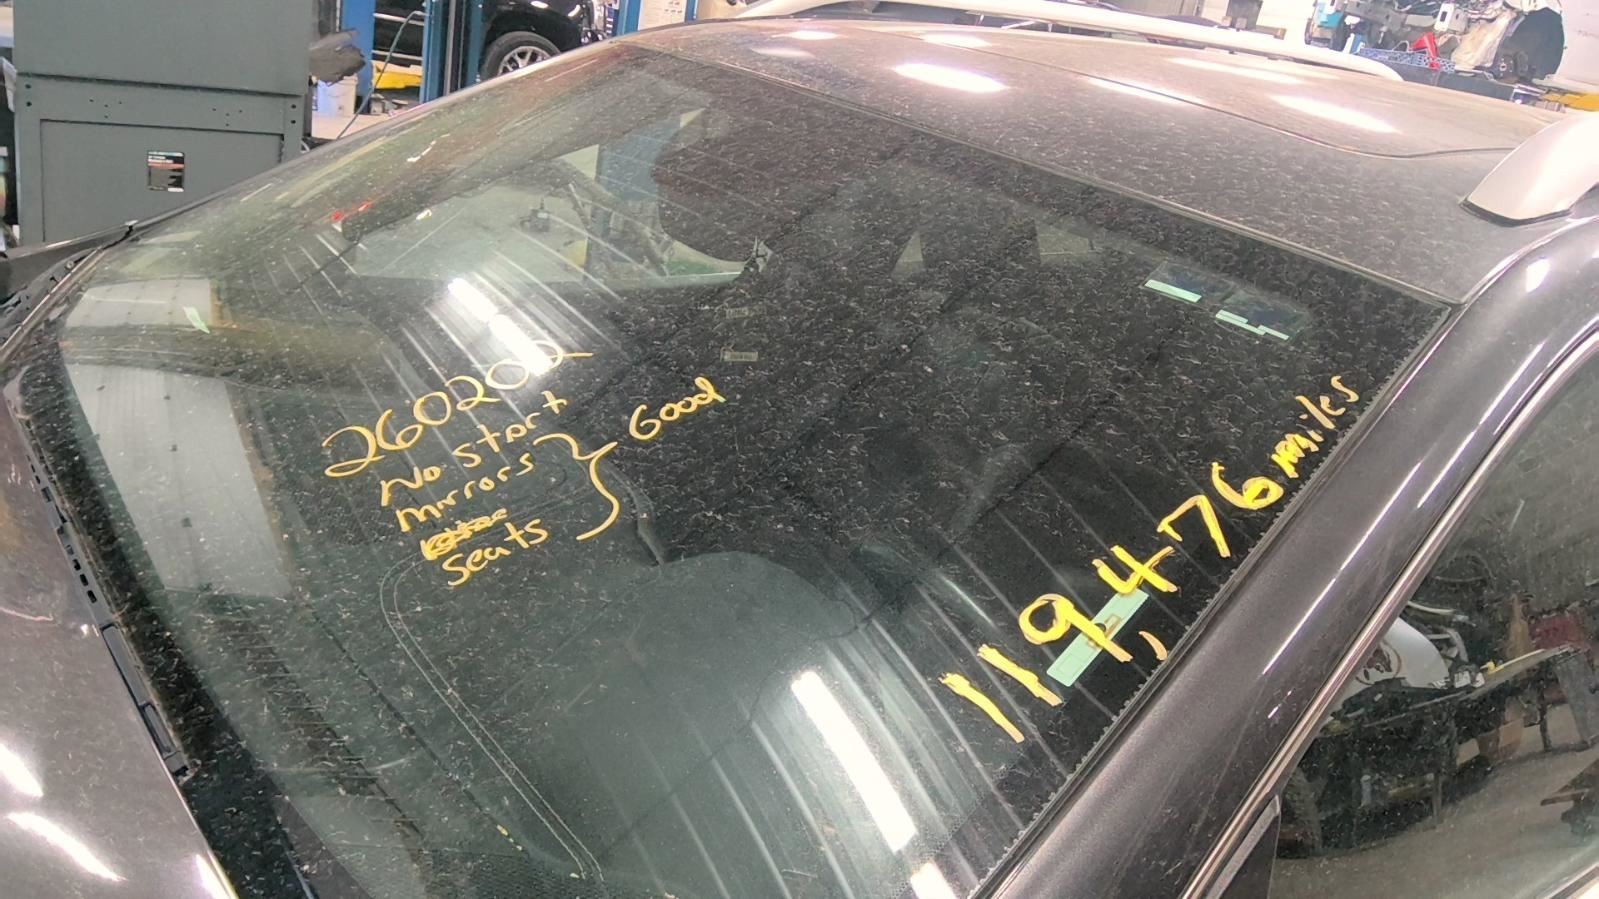 260202
No Start
Mirrors
Seats
Good
119,476 miles